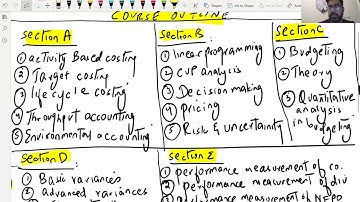 COURSE OUTLINE
Section A
① activity Based costing
② Target costing
③ life cycle costing
④ Throughput accounting
⑤ Environmental accounting
Section B
① linear programming
② CVP analysis
③ Decision making
④ Pricing
⑤ Risk & uncertainty
Section C
① Budgeting
② Theory
③ Quantitative
analysis
in budgeting.
Section D
① Basic variances
② advanced variances
Section E
① performance measurement of co.
② performance measurement of div
performance measurement of NFPO